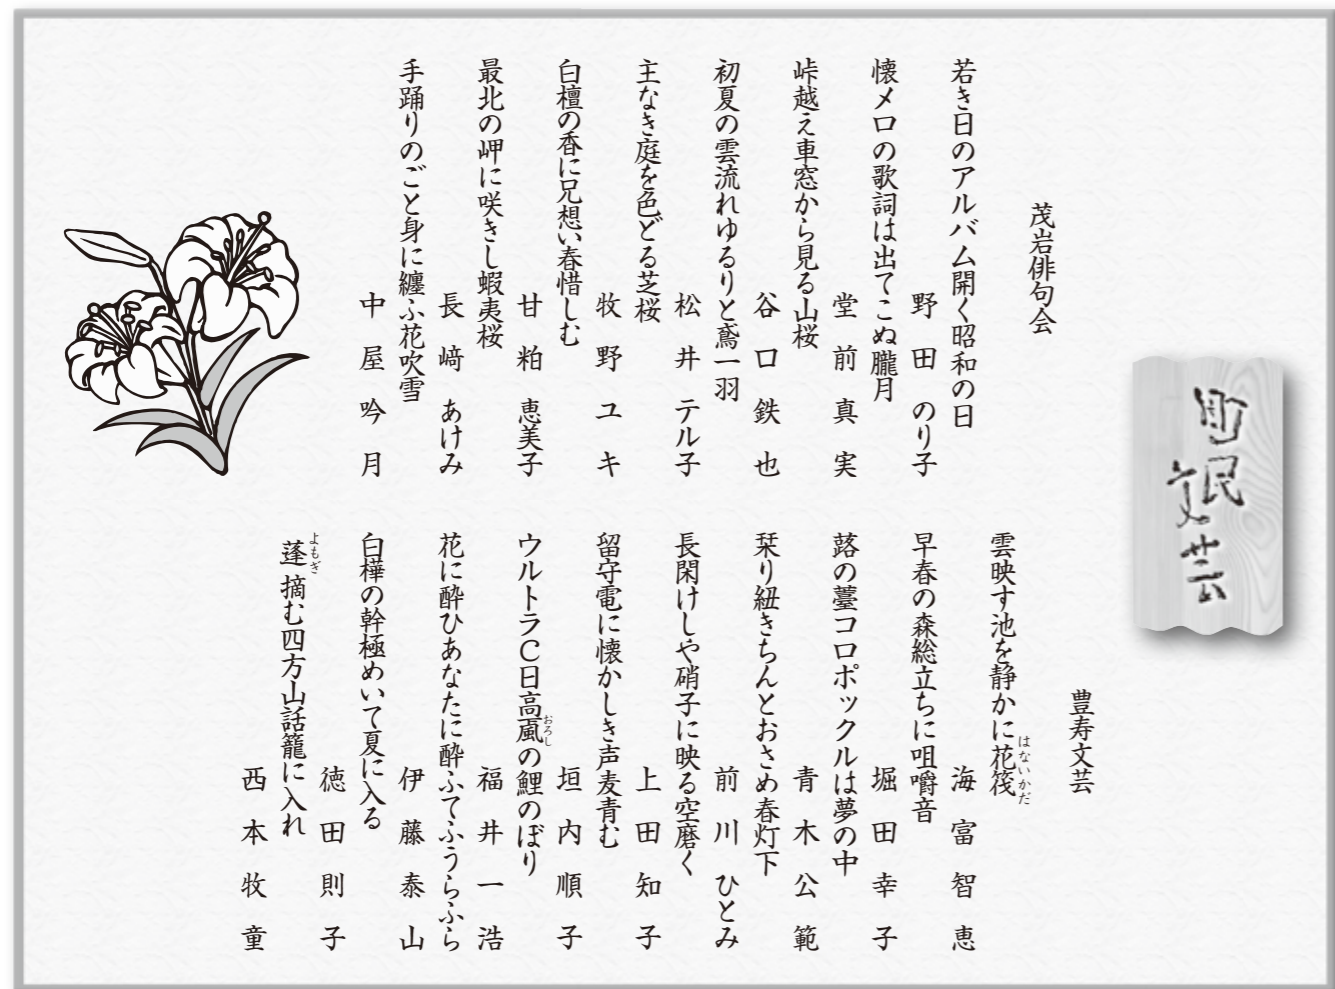 町民文芸
茂岩俳句会
若き日のアルバム開く昭和の日
野田のり子
懐メロの歌詞は出てこぬ朧月
堂前真実
峠越え車窓から見る山桜
谷口鉄也
初夏の雲流れゆるりと鳶一羽
松井テル子
主なき庭を色どる芝桜
牧野ユキ
白檀の香に兄想い春惜しむ
甘粕恵美子
最北の岬に咲きし蝦夷桜
長﨑あけみ
手踊りのごと身に纏ふ花吹雪
中屋吟月
豊寿文芸
雲映す池を静かに花筏
はないかだ
海冨智恵
早春の森総立ちに咀嚼音
堀田幸子
蕗の薹コロポックルは夢の中
青木公範
栞り紐きちんとおさめ春灯下
前川ひとみ
長閑けしや硝子に映る空磨く
上田知子
留守電に懐かしき声麦青む
垣内順子
ウルトラC日高颪の鯉のぼり
おろし
福井一浩
花に酔ひあなたに酔ふてふうらふら
伊藤泰山
白樺の幹極めいて夏に入る
徳田則子
蓬摘む四方山話籠に入れ
よもぎ
西本牧童